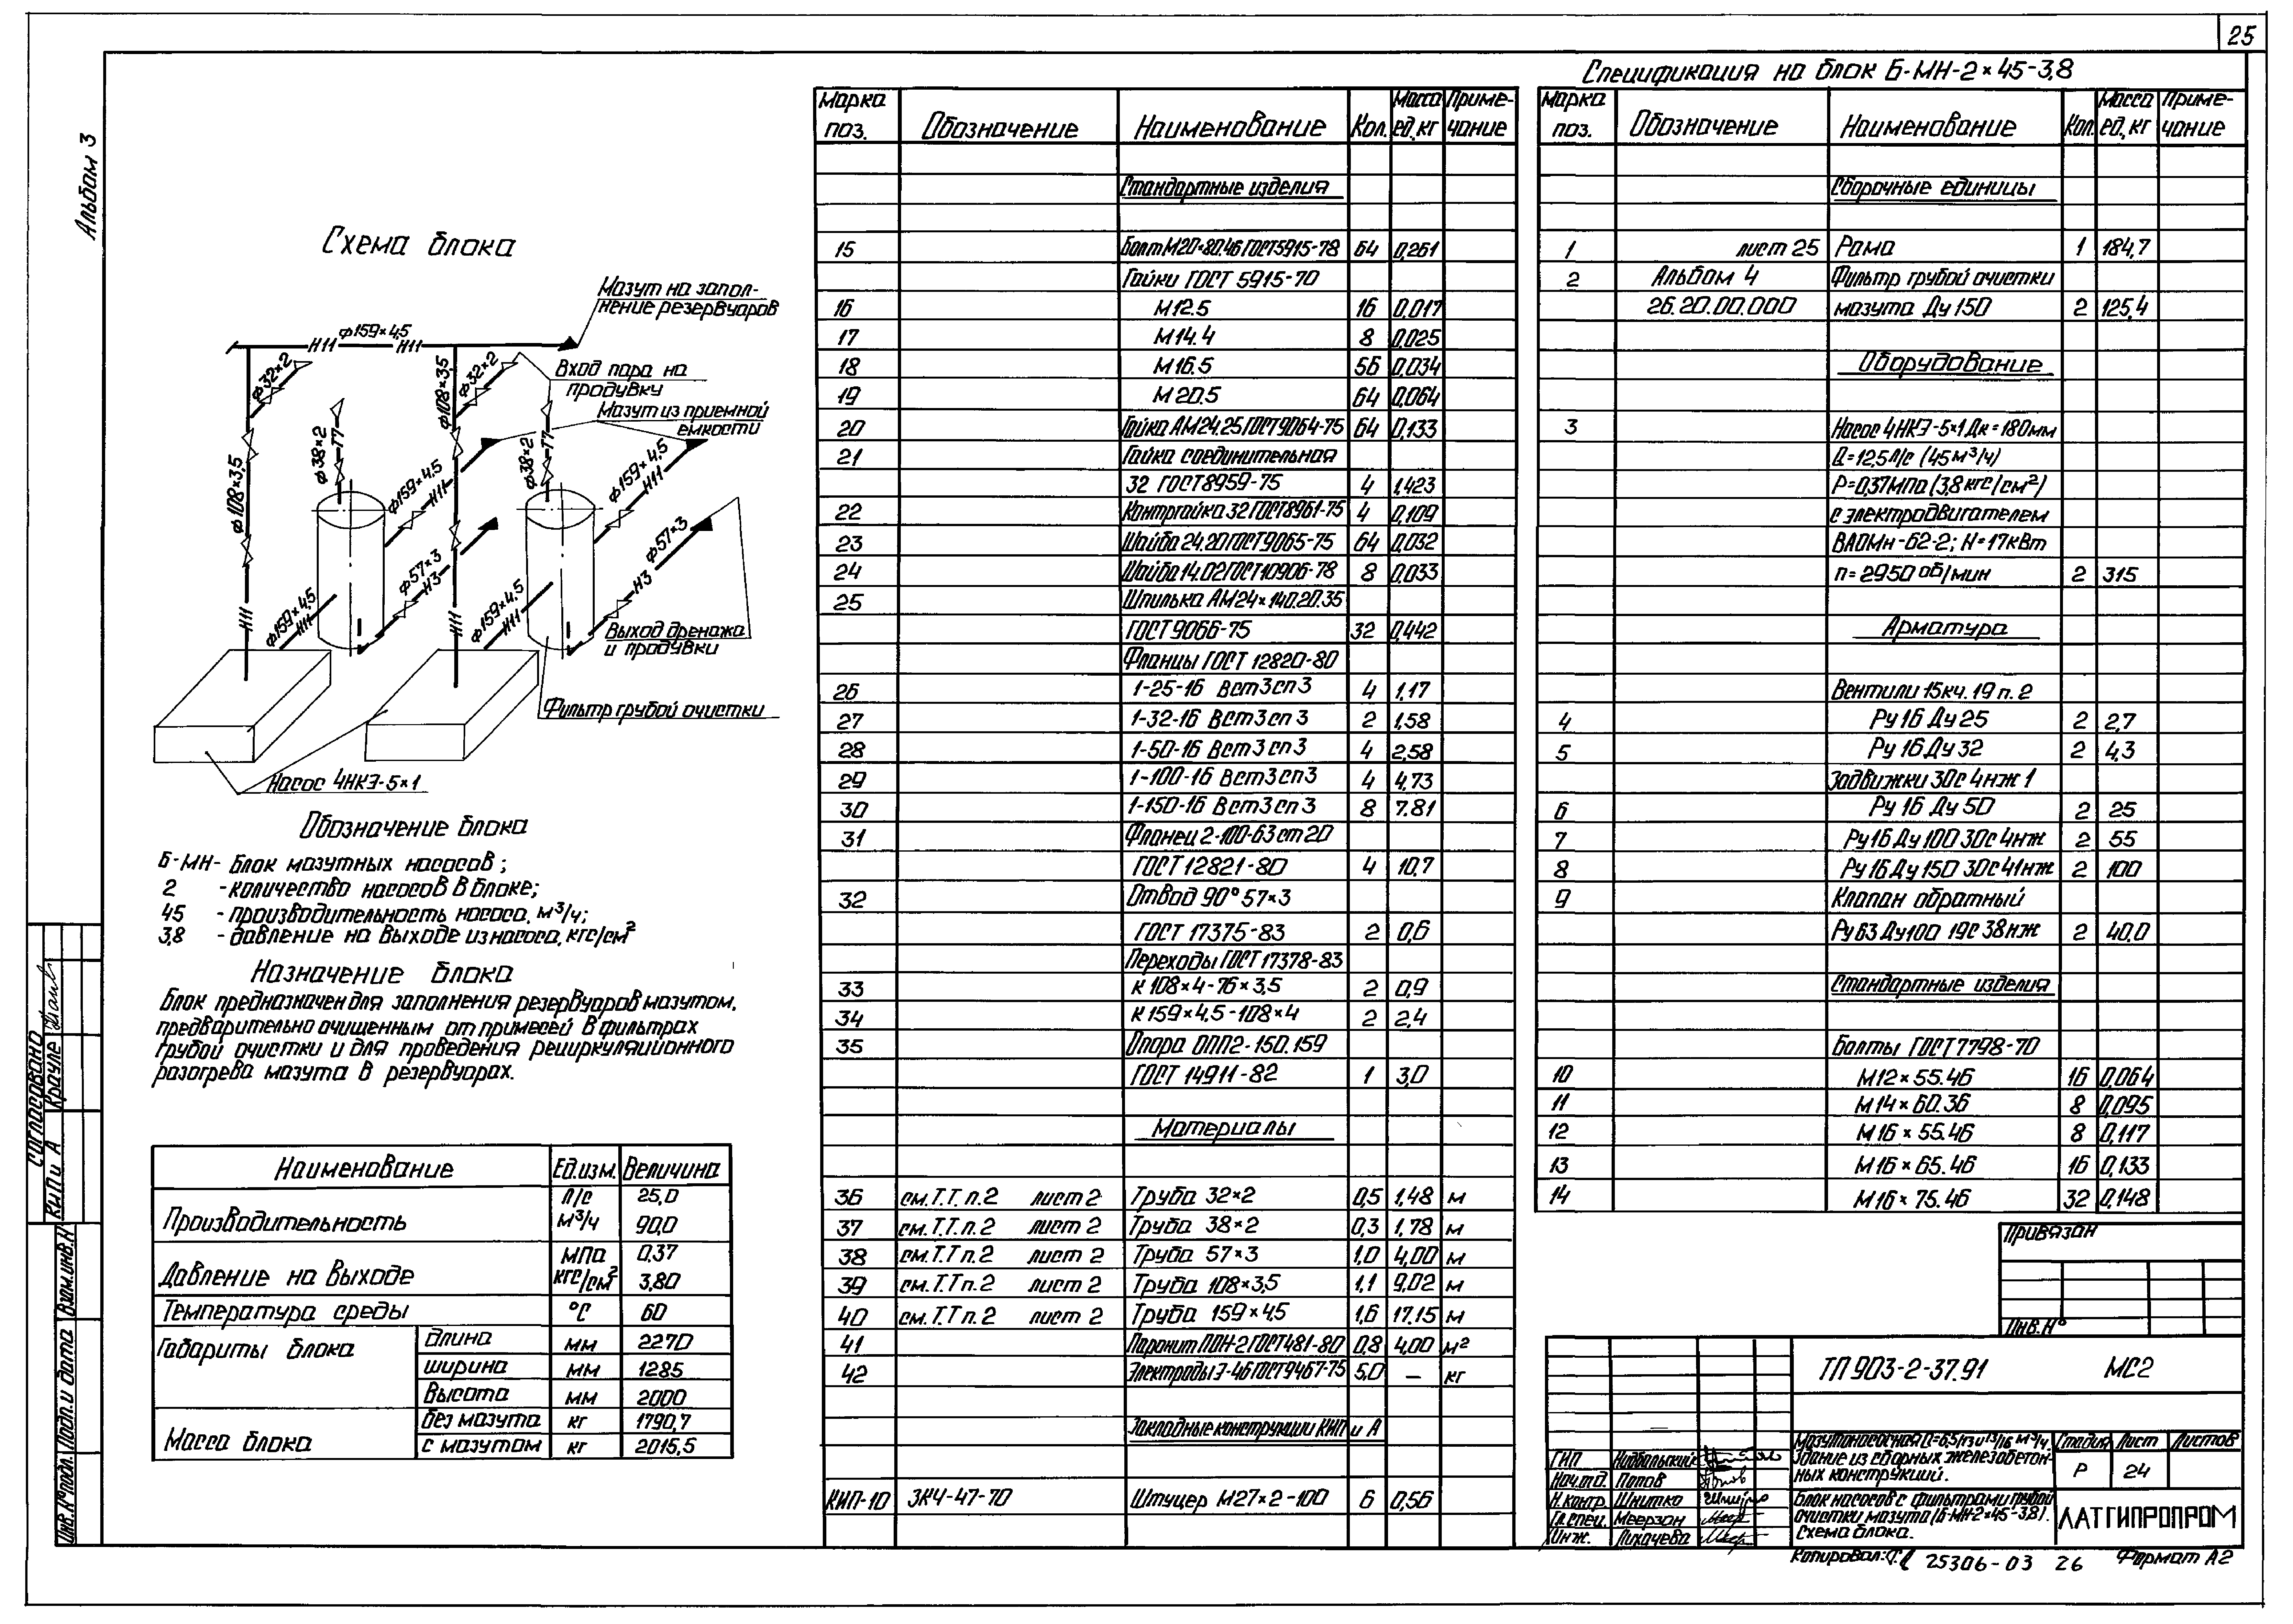 25
Альбом 3
Схема блока
Мазут на запол-
нение резервуаров
ф159×4,5
Н11
Н11
ф32×2
ф108×3,5
ф32×2
Вход пара на
продувку
Мазут из приемной
емкости
ф108×3,5
ф38×2
Т7
ф159×4,5
Н11
ф38×2
Т7
ф159×4,5
Н11
ф57×3
Н3
ф57×3
Н3
Н11
ф159×4,5
Н11
Н11
ф159×4,5
Н11
Выход дренажа
и продувки
Фильтр грубой очистки
Насос 4НКЭ-5×1
Обозначение блока
Б-МН- блок мазутных насосов;
2 - количество насосов в блоке;
45 - производительность насоса, м³/ч;
3,8 - давление на выходе из насоса, кгс/см²
Назначение блока
Блок предназначен для заполнения резервуаров мазутом,
предварительно очищенным от примесей в фильтрах
грубой очистки и для проведения рециркуляционного
разогрева мазута в резервуарах.
Наименование Ед.изм. Величина
Производительность л/с 25,0
м³/ч 90,0
Давление на выходе МПа 0,37
кгс/см² 3,80
Температура среды °С 60
Габариты блока длина мм 2270
ширина мм 1285
высота мм 2000
Масса блока без мазута кг 1790,7
с мазутом кг 2015,5
Марка поз. Обозначение Наименование Кол. Масса ед, кг Приме-чание
Стандартные изделия
15 Болт М20×80.46 ГОСТ5915-78 64 0,261
Гайки ГОСТ 5915-70
16 М12.5 16 0,017
17 М14.4 8 0,025
18 М16.5 56 0,034
19 М20.5 64 0,064
20 Гайка АМ24.25 ГОСТ9064-75 64 0,133
21 Гайка соединительная
32 ГОСТ8959-75 4 1,423
22 Контргайка 32 ГОСТ8961-75 4 0,109
23 Шайба 24.20 ГОСТ9065-75 64 0,032
24 Шайба 14.02 ГОСТ10906-78 8 0,033
25 Шпилька АМ24×140.20.35
ГОСТ9066-75 32 0,442
Фланцы ГОСТ 12820-80
26 1-25-16 Вст3сп3 4 1,17
27 1-32-16 Вст3сп3 2 1,58
28 1-50-16 Вст3сп3 4 2,58
29 1-100-16 Вст3сп3 4 4,73
30 1-150-16 Вст3сп3 8 7.81
31 Фланец 2-100-63 ст20
ГОСТ 12821-80 4 10,7
32 Отвод 90° 57×3
ГОСТ 17375-83 2 0,6
Переходы ГОСТ 17378-83
33 К 108×4-76×3,5 2 0,9
34 К 159×4,5-108×4 2 2,4
35 Опора ОПП2-150.159
ГОСТ 14911-82 1 3,0
Материалы
36 см.Т.Т. п.2 лист 2 Труба 32×2 0,5 1,48 м
37 см.Т.Т п.2 лист 2 Труба 38×2 0,3 1,78 м
38 см.Т.Т п.2 лист 2 Труба 57×3 1,0 4,00 м
39 см.Т.Т п.2 лист 2 Труба 108×3,5 1,1 9,02 м
40 см.Т.Т п.2 лист 2 Труба 159×4,5 1,6 17.15 м
41 Паронит ПОН-2 ГОСТ481-80 0,8 4,00 м²
42 Электроды Э-46 ГОСТ9467-75 5,0 — кг
Закладные конструкции КИП и А
КИП-10 ЗК4-47-70 Штуцер М27×2-100 6 0,56
Спецификация на блок Б-МН-2×45-3,8
Марка поз. Обозначение Наименование Кол. Масса ед, кг Приме-чание
Сборочные единицы
1 лист 25 Рама 1 184,7
2 Альбом 4 Фильтр грубой очистки
26.20.00.000 мазута Ду 150 2 125,4
Оборудование
3 Насос 4НКЭ-5×1 Дк=180мм
Q=12,5 л/с (45 м³/ч)
Р=0,37МПа (3,8 кгс/см²)
с электродвигателем
ВАОМн-62-2; N=17кВт
п=2950 об/мин 2 315
Арматура
Вентили 15кч.19 п.2
4 Ру 16 Ду 25 2 2,7
5 Ру 16 Ду 32 2 4,3
Задвижки 30с 4нж 1
6 Ру 16 Ду 50 2 25
7 Ру16 Ду100 30с 4нж 2 55
8 Ру16 Ду150 30с41нж 2 100
9 Клапан обратный
Ру63 Ду100 19с 38нж 2 40,0
Стандартные изделия
Болты ГОСТ7798-70
10 М12×55.46 16 0,064
11 М14×60.36 8 0,095
12 М16×55.46 8 0,117
13 М16×65.46 16 0,133
14 М16×75.46 32 0,148
Привязан
Инв.N°
ТП 903-2-37.91 МС2
Здание из сборных железобетон-
ных конструкций.
Стадия Лист Листов
Р 24
Блок насосов с фильтрами грубой
очистки мазута (Б-МН-2×45-3,8).
Схема блока.
ЛАТГИПРОПРОМ
ГИП
Нач.отд. Попов
Н.контр. Шнитко
Гл.спец. Меерзан
Инж. Лихачева
Копировал: 25306-03 26 Формат А2
Согласовано
КИП и А Крауле
Взам.инв.N
Подп. и дата
Инв.N°подл.